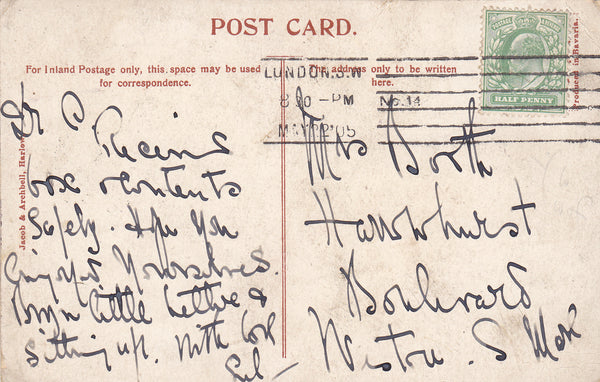 POST CARD.
For Inland Postage only, this space may be used
for correspondence.
The address only to be written
here.
LONDON. S.W
8 30 - PM No. 14
MAY 2 05
HALF PENNY
Produced in Bavaria.
Jacob & Archbell, Harlow
Dr C
box & contents
Safely. Hope you
Enjoyed Yourselves.
little Lettice &
Sitting up. With love
Mrs Booth
Hawkhurst
Boulevard
Weston. S. Mare